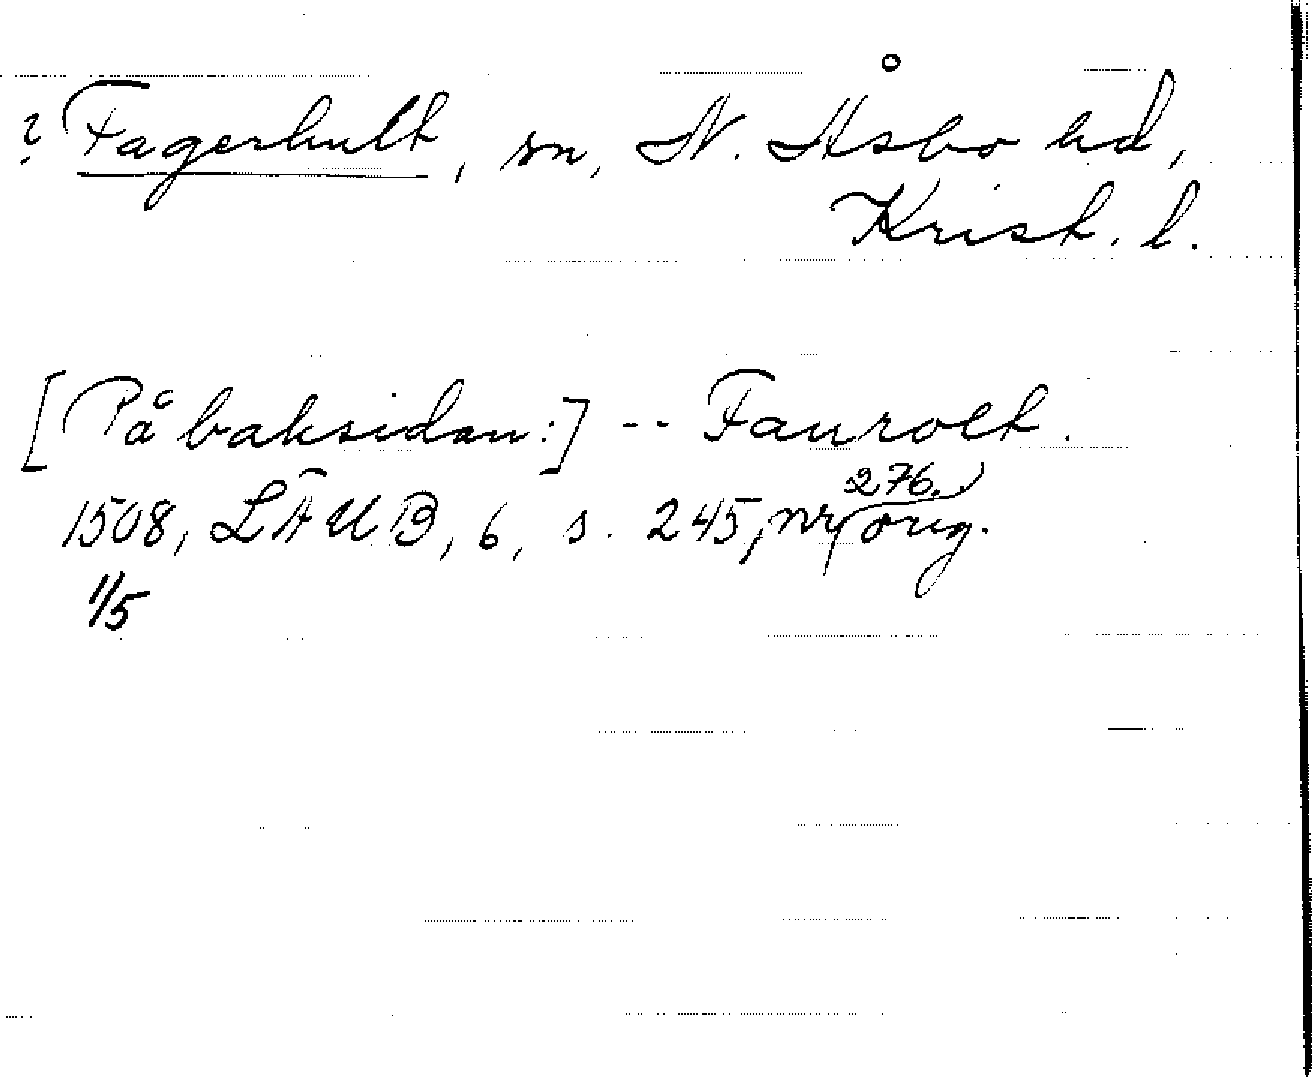 ? Fagerhult, sn, N. Åsbo hd,
Krist. l.
[På baksidan:] -- Faurolt.
1508, LÄUB, 6, s. 245, nr 276. orig.
1/5